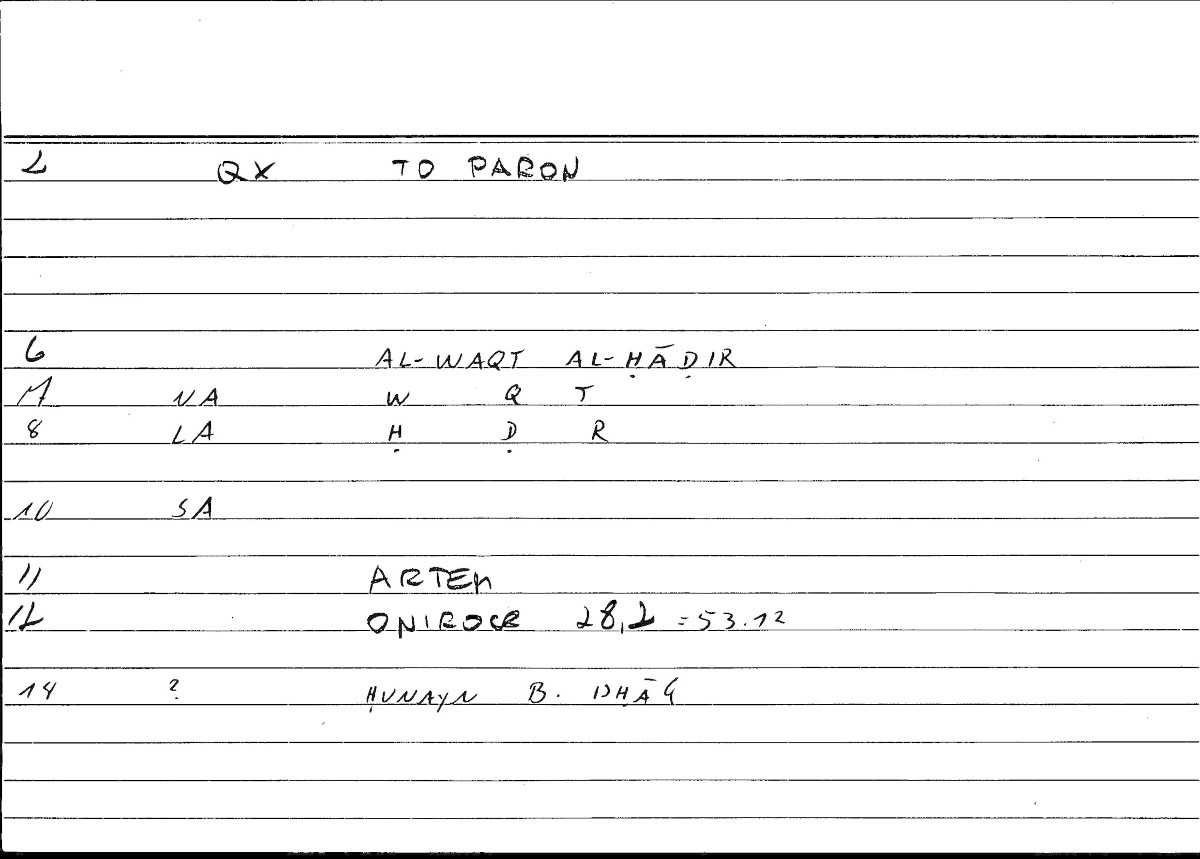 2 QX TO PARON
6 AL-WAQT AL-ḤĀḌIR
7 NA W Q T
8 LA Ḥ Ḍ R
10 SA
11 ARTEM
12 ONIROCR 28,2 = 53.12
14 ? ḤUNAYN B. ISḤĀQ